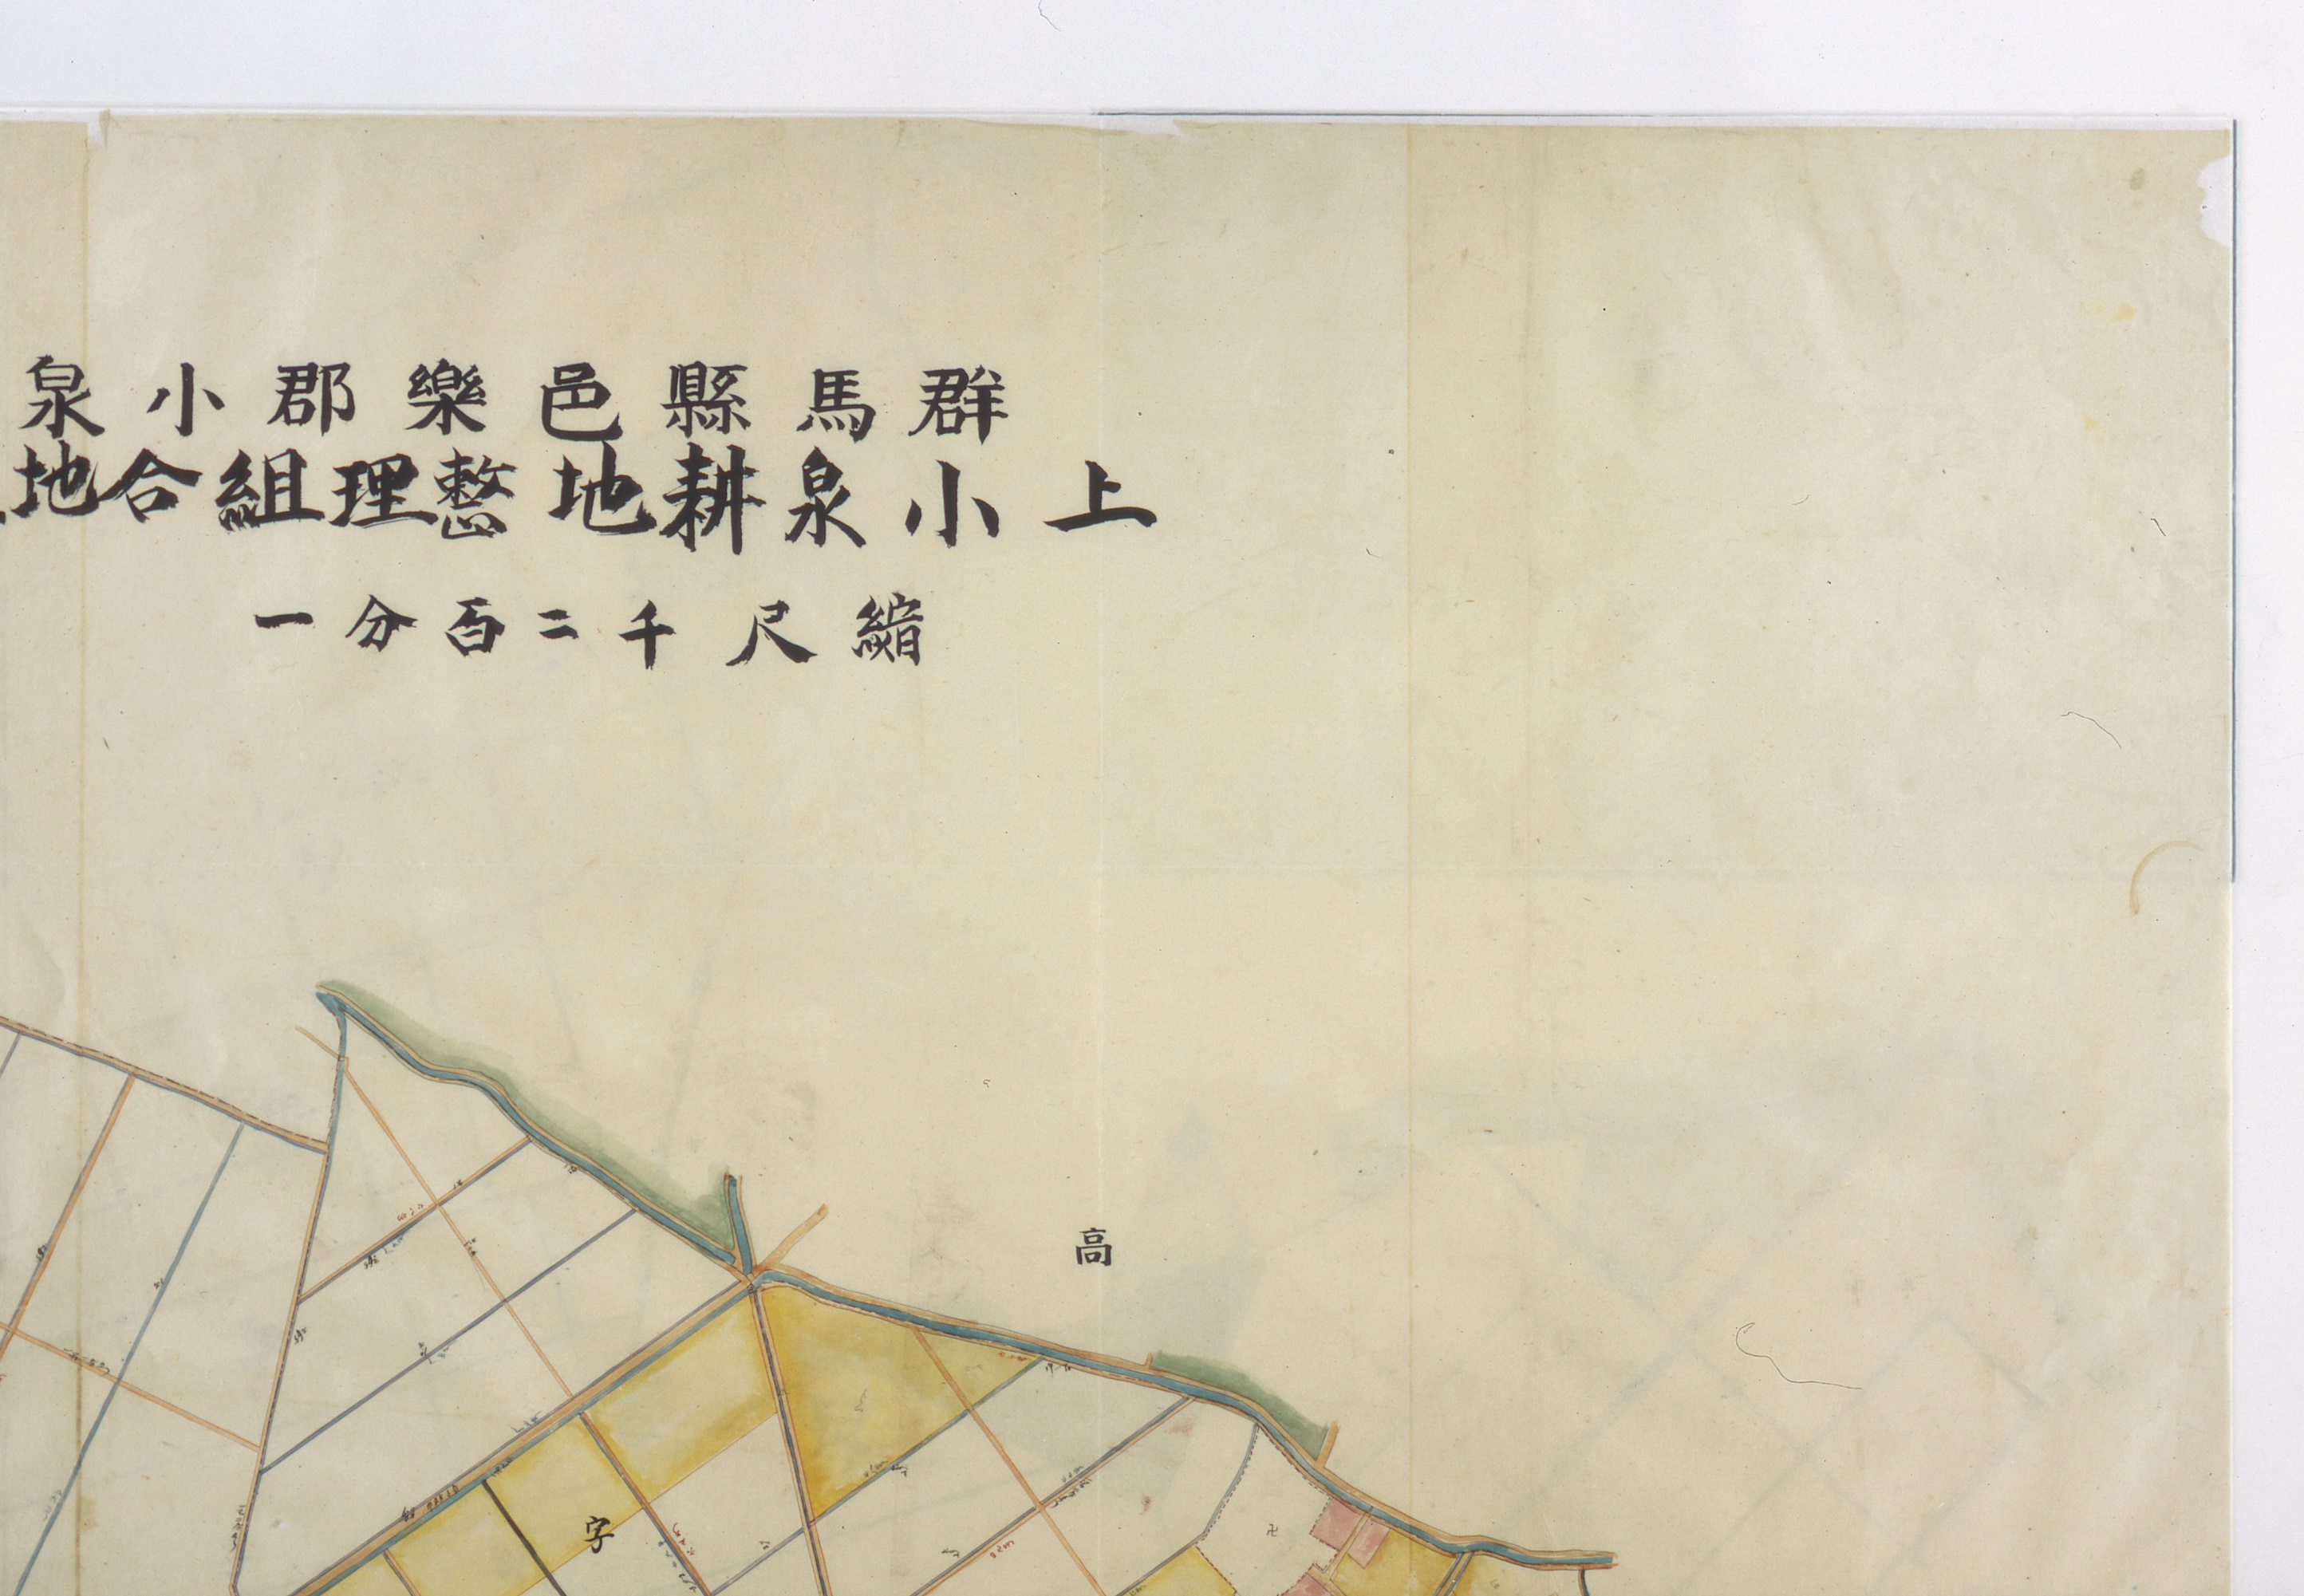 群馬縣邑樂郡小泉
上小泉耕地整理組合地
縮尺千二百分一
高
字
卍